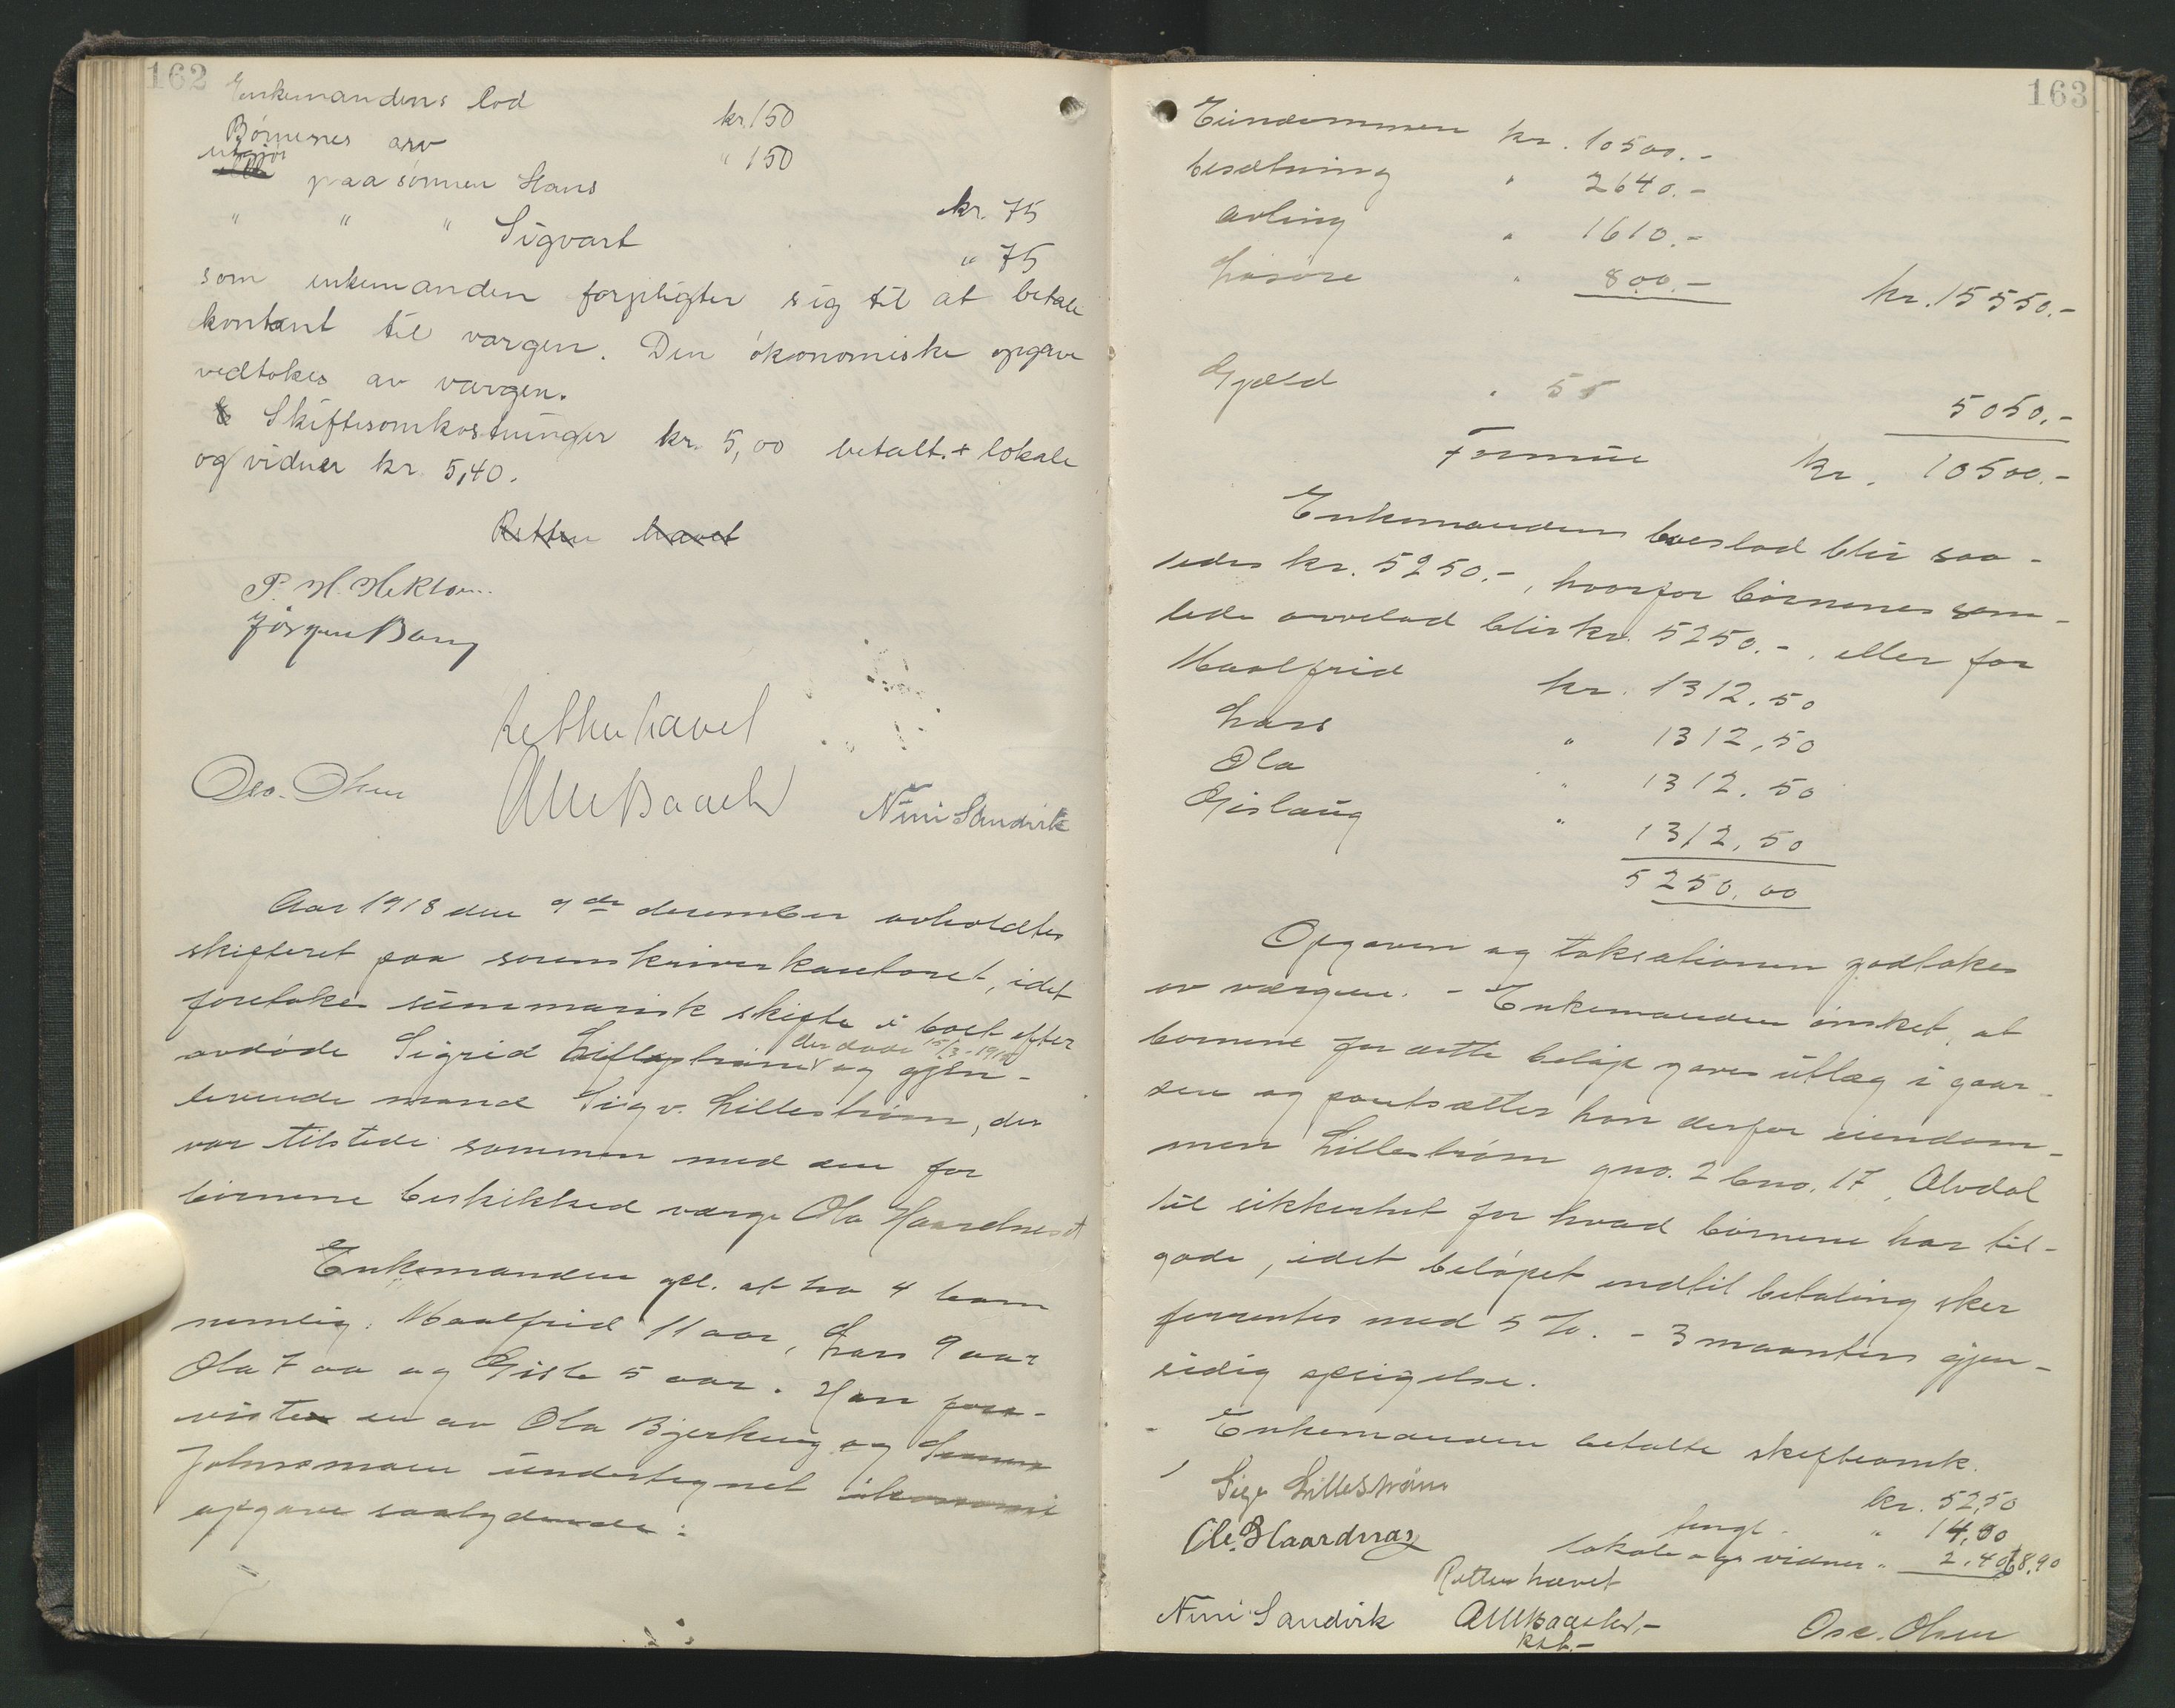 162
Enkemandens lod kr. 150
Børnenes arv " 150
utgjør
paa sønnen Hans kr. 75
" " " Sigvart " 75
som enkemanden forpligter sig til at betale
kontant til værgen. Den økonomiske opgave
vedtokes av værgen.
Skiftesomkostninger kr. 5,00 betalt. + lokale
og vidner kr 5,40.
Retten hævet
P. H. Hektoen
Jørgen Bang
Retten hævet
Osc. Olsen Nini Sandvik
Aar 1918 den 9de desember avholdtes
skifteret paa sorenskriverkontoret, idet
foretokes summarisk skifte i boet efter
der døde 15/3-1918
avdøde Sigrid Lillestrøm og gjen-
levende mand Sigv. Lillestrøm, der
var tilstede sammen med den for
børnene beskikked værge Ola Haardnes
Enkemanden opl. at ha 4 barn
nemlig: Maalfrid 11 aar, Lars 9 aar
Ola 7 aa og Gisla 5 aar. Han frem-
viste en av Ola Bjerkeng og
Johnsmoen undertegnet
opgave saalydende:
163
Eiendommen kr. 10500.-
besætning " 2640.-
avling " 1610.-
Løsøre " 800.- kr. 15550.-
Gjæld " 55 5050.-
Formue kr. 10500.-
Enkemandens boeslod blir saa-
ledes kr. 5250.-, hvorfor børnenes sam-
lede arvelod blir kr. 5250.-, eller for
Maalfrid kr. 1312.50
Lars " 1312,50
Ola " 1312.50
Gislaug " 1312,50
5250,00
Opgaven og taksationen godtokes
av værgen. - Enkemanden ønsket, at
børnene for dette beløp gaves utlæg i gaar-
den og pantsætter han derfor eiendom-
men Lillestrøm gno. 2 bno. 17, Alvdal
til sikkerhet for hvad børnene har til-
gode, idet beløpet indtil betaling sker
forrentes med 5 %. - 3 maaneders gjen-
sidig opsigelse.
- Enkemanden betalte skifteomk.
kr. 52,50
Sigv Lillestrøm
tingl. " 14,00
Ole Haardnas
lokale og vidner " 2.40 68,90
Retten hævet
Nini Sandvik Osc. Olsen